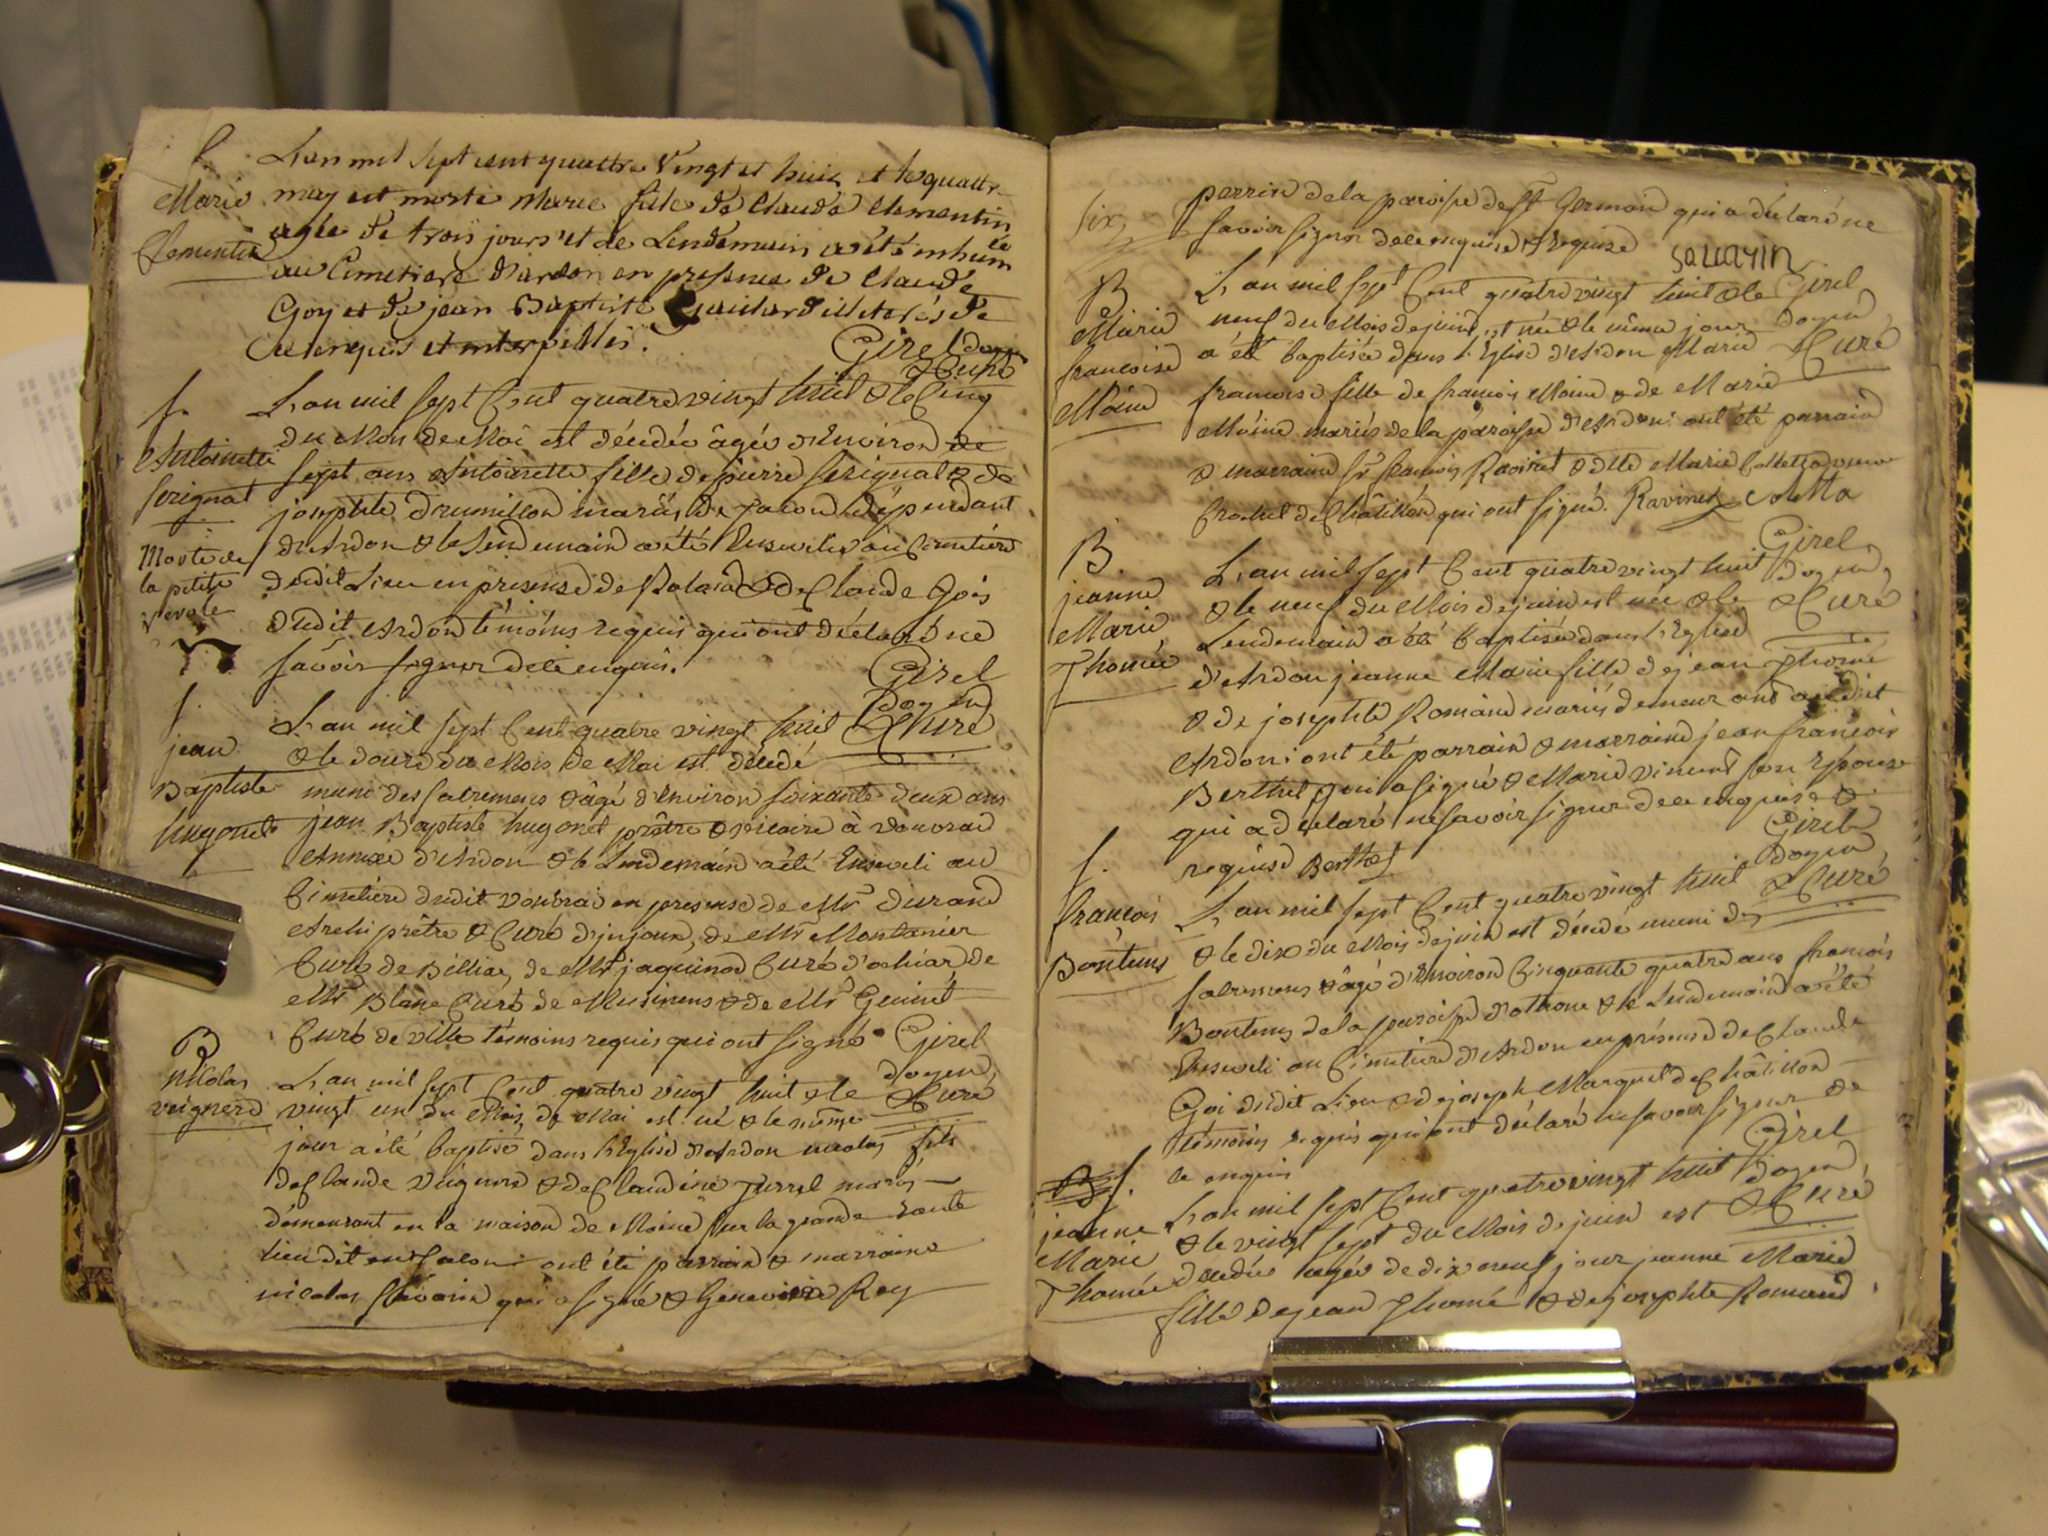 f.
Marie
Clementin
L'an mil sept cent quattre Vingt et huit et le quattre
may est morte Marie fille de Claude Clementin
agée de trois jours et le Lendemain a été inhumée
au Cimetiere d'ardon en presence de Claude
Goy et de jean Baptiste Guichard illeterés de
ce enquis
Girel doyen
& Curé
f.
Antoinette
serignat
Morte de
la petite
verole
L'an mil sept Cent quatre vingt huit & le Cinq
du Mois de Mai est décedée âgée d'Environ de
sept ans Antoinette fille de pierre serignat & de
josephte Drumillon mariés de dépendant
d'Ardon & le Lendemain a été Ensevelie au Cimetière
dudit Lieu en presence de & de Claude Goi
dudit Ardon témoins requis qui ont déclaré ne
savoir signer de ce enquis.
Girel
doyen
& Curé
f.
jean
Baptiste
hugonet
L'an mil sept Cent quatre vingt huit
& le douze du Mois de Mai est décedé
muni des sacremens & âgé d'Environ soixante deux ans
jean Baptiste hugonet prêtre & vicaire à vouvrai
Annexe d'Ardon & le Lendemain a été Enseveli au
Cimetière dudit vouvrai en presence de Mr durand
Archiprêtre & Curé d'injoux, de Mr Montanier
Curé de Billiac, de Mr jaquinod Curé d'ochiaz de
Mr Blanc Curé de Musinens & de Mr Guinet
Curé de ville témoins requis qui ont signé
Girel
doyen,
& Curé
B
Nicolas
veignerd
L'an mil sept Cent quatre vingt huit & le
vingt un du Mois de Mai est né & le même
jour a été baptisé dans l'Eglise d'Ardon nicolas fils
de Claude & de Claudine mariés
démeurant en la maison de Moine sur la grande route
lieu dit ont été parrain & marraine
nicolas qui a signé & Genevieve Rey
six
perrin de la paroisse de St Germain qui a déclaré ne
savoir signer de ce enquise & requise
sauarin
Girel
doyen,
& Curé
B
Marie
françoise
Moine
L'an mil sept Cent quatre vingt huit & le
neuf du Mois de juin est née & le même jour
a été baptisée dans l'Eglise d'Ardon Marie
françoise fille de françois Moine & de Marie
Moine mariés de la paroisse d'Ardon: ont été parrain
& marraine Sr françois Ravinet & dlle Marie Colletta
de Châtillon qui ont signé. Ravinet Coletta
Girel
doyen,
& Curé
B.
jeanne
Marie
Thomée
L'an mil sept Cent quatre vingt huit
& le neuf du Mois de juin est née & le
Lendemain a été baptisée dans l'Eglise
d'Ardon jeanne Marie fille de jean Thomé
& de josephte Romand mariés demeurans audit
Ardon: ont été parrain & marraine jean françois
Berthet qui a signé & Marie vincent son Epouse
qui a déclaré ne savoir signer de ce enquise &
requise Berthet
Girel
doyen,
& Curé
f.
françois
Bontems
L'an mil sept Cent quatre vingt huit
& le dix du Mois de juin est décedé muni des
sacremens & âgé d'Environ Cinquante quatre ans françois
Bontems de la paroisse & le Lendemain a été
Enseveli au Cimetière d'Ardon en présence de Claude
Goi dudit Lieu & de joseph Marquet de Châtillon
témoins requis qui ont déclaré ne savoir signer de
ce enquis
Girel
doyen,
& Curé
f.
jeanne
Marie
Thomée
L'an mil sept Cent quatre vingt huit
& le vingt sept du Mois de juin est
decedée agée de dix neuf jour jeanne Marie
fille de jean Thomé & de josephte Romand